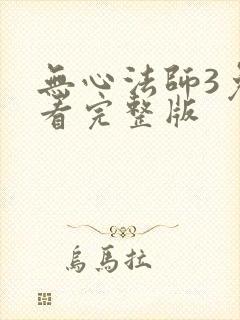 無心法師3免
看完整版
烏馬拉